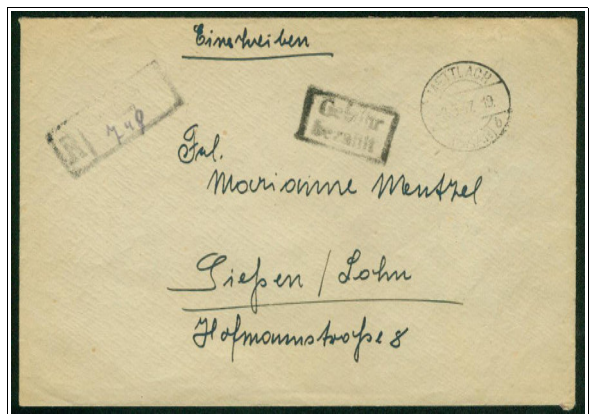 Einschreiben
METTLACH
Gebühr
bezahlt
R
Frl.
Marianne Mentzel
Gießen / Lahn
Hofmannstraße 8